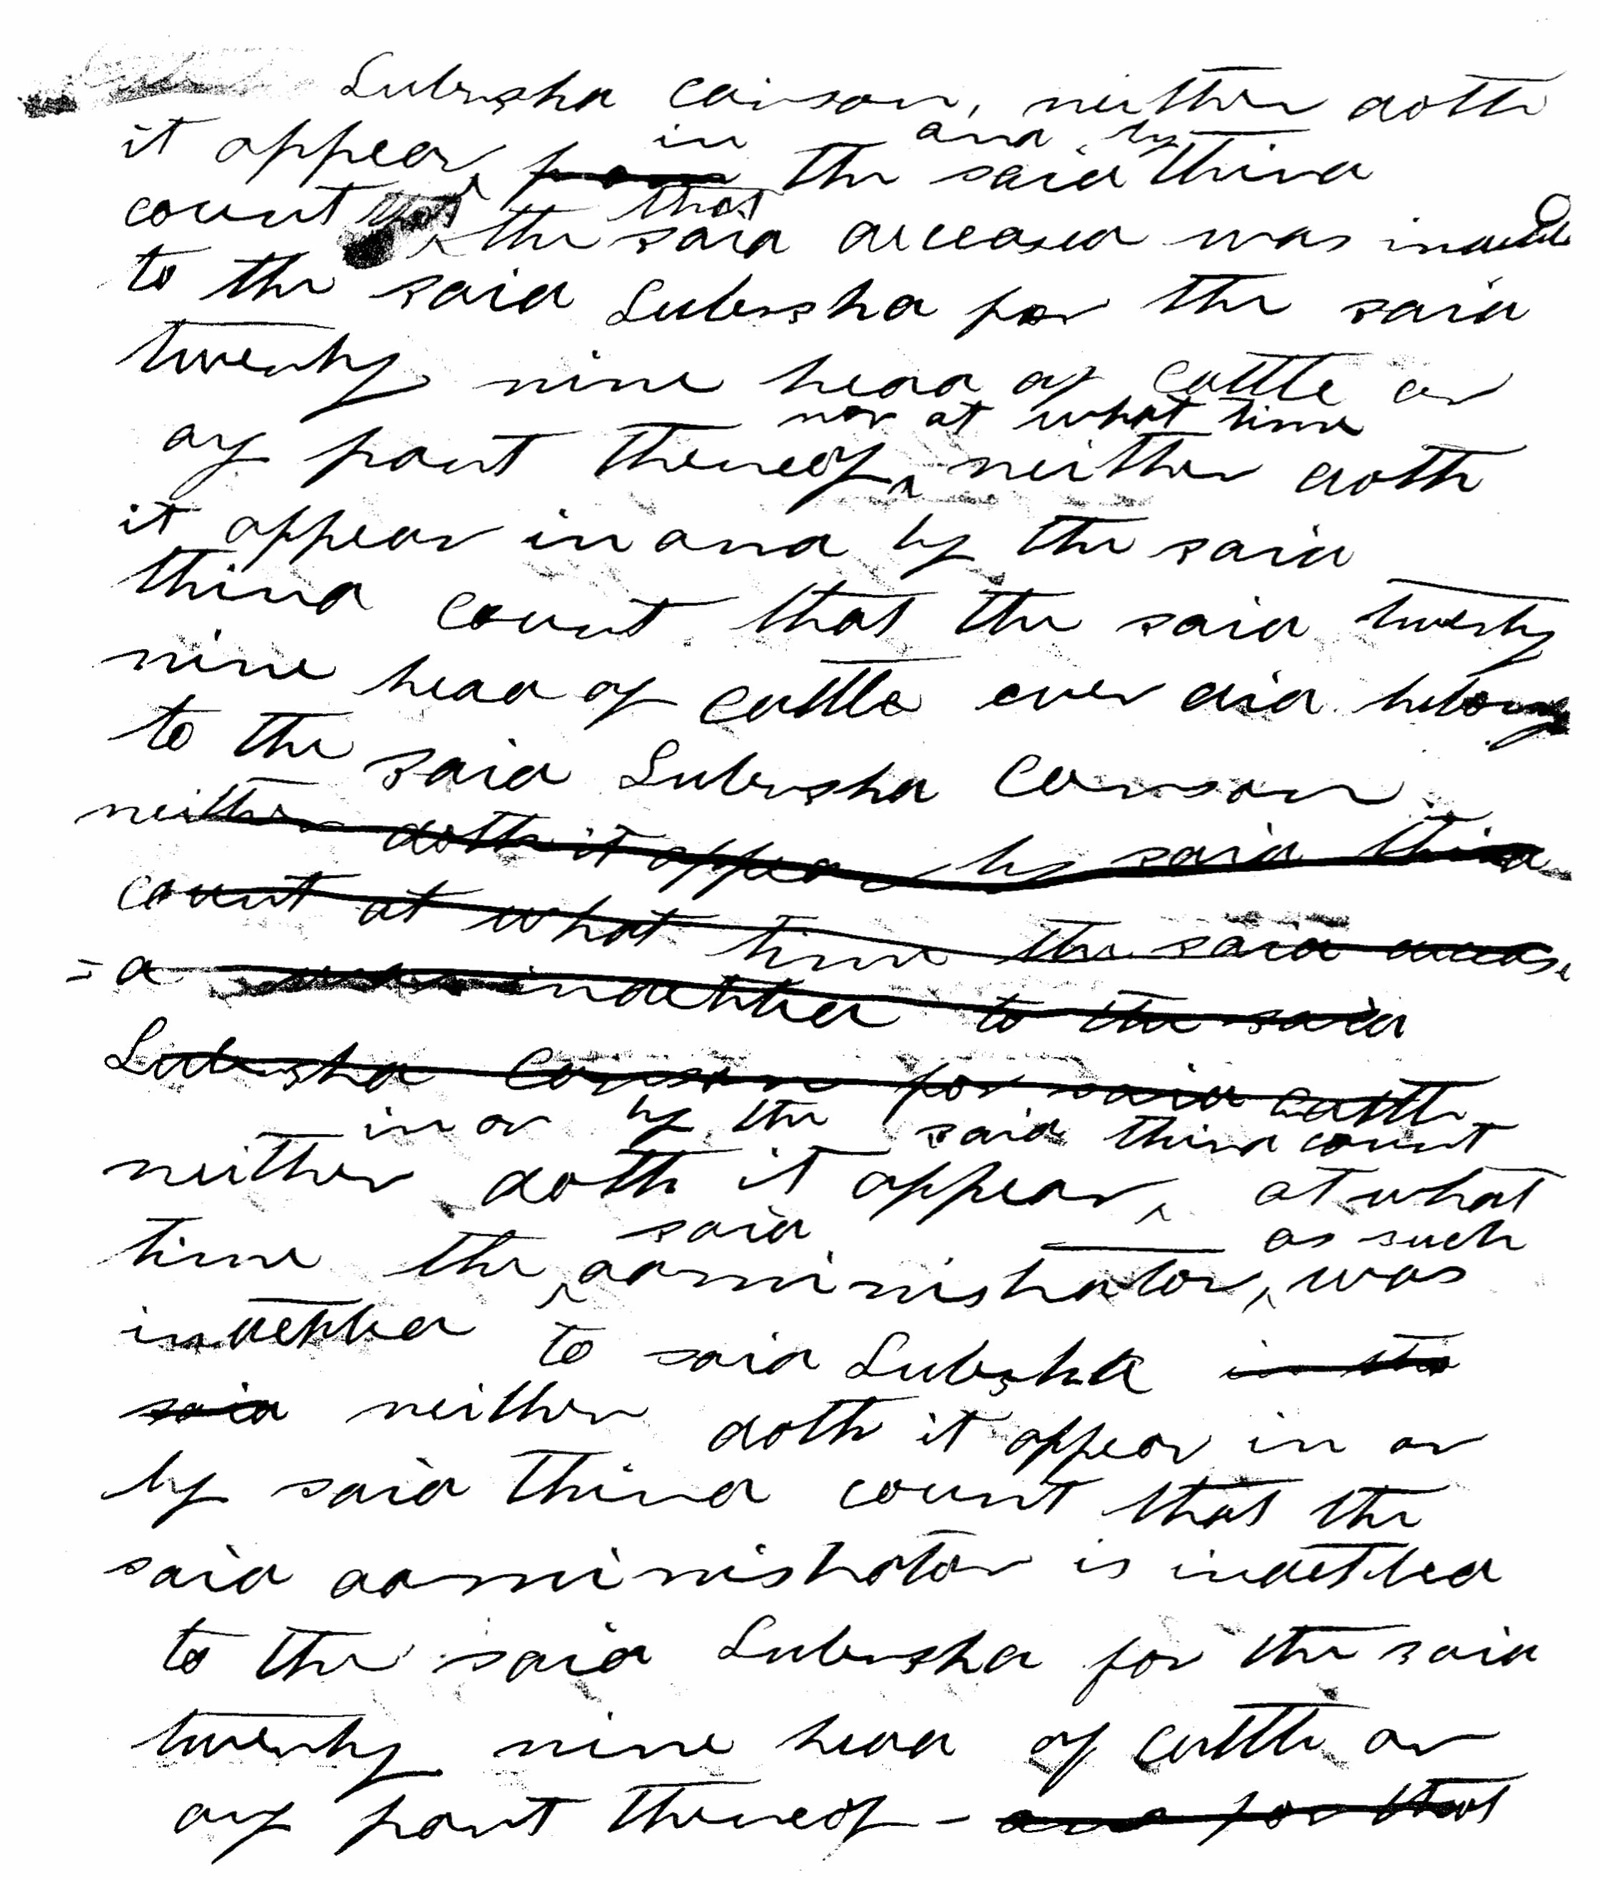 Lubrsha Carson, neither doth
in and by
it appear, from the said third
that
count that the said deceased was indebted
to the said Lubrsha for the said
twenty nine head of cattle or
nor at what time
any part thereof, neither doth
it appear in and by the said
third count that the said twenty
nine head of cattle ever did belong
to the said Lubrsha Carson
neither doth it appear by said third
count at what time the said decease
=d was indebted to the said
Lubrsha Carson for said cattle
in or by the said third count
neither doth it appear, at what
said as such
time the administrator, was
indebted to said Lubrsha in the
said neither doth it appear in or
by said third count that the
said administrator is indebted
to the said Lubrsha for the said
twenty nine head of cattle or
any part thereof - and for that